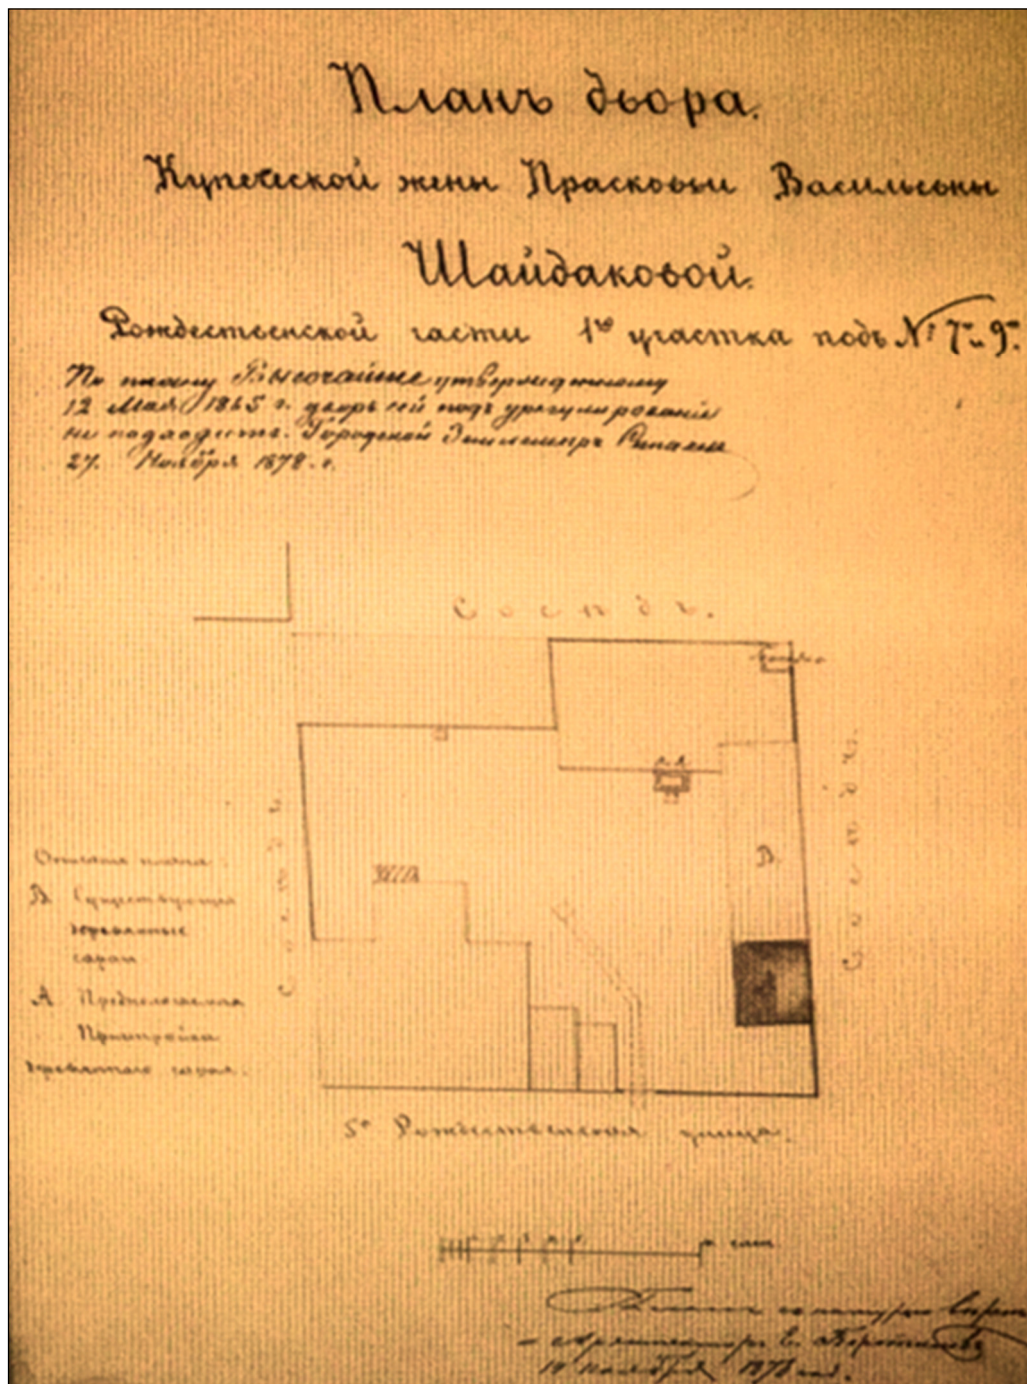 Планъ двора.
Купеческой жены Прасковьи Васильевны
Шайдаковой.
Рождественской части 1го участка подъ № 7 и 9.
По плану Высочайше утвержденному
12 Мая 1865 г. дворъ сей подъ урегулирование
не подходитъ. Городской Землемеръ
27. Ноября 1878. г.
Сосѣдъ.
Сосѣдъ.
В.
Сосѣдъ.
Описание плана
В Существующие
деревянные
сараи
А Предполагаемая
Пристройка
деревянного сарая.
5я Рождественская улица.
саж.
Планъ съ натурою веренъ
Архитекторъ
10 ноября 1878 год.